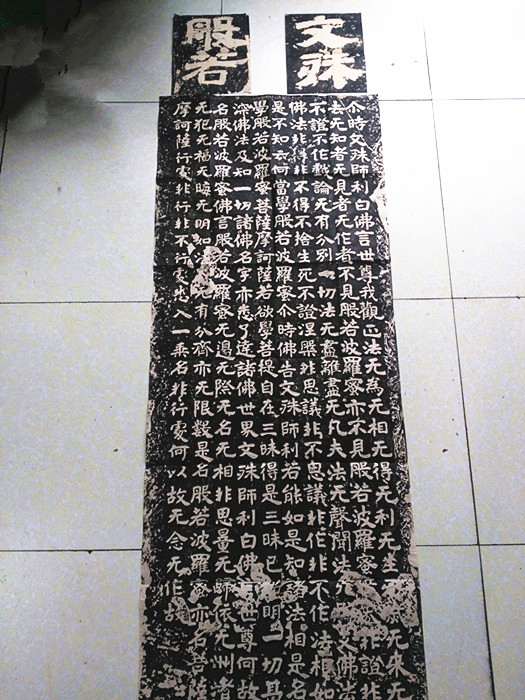 文殊
般若
尒時文殊師利白佛言世尊我觀正法无為无相无得无利无生无来无
去无知者无見者无作者不見般若波羅蜜亦不見般若波羅蜜非證非
不證不作戲論无有分別一切法无盡離盡无凡夫法无聲聞法支佛法
佛法非得非不得不捨生死不證涅槃非思議非不思議非作非不作法相如
是不知云何當學般若波羅蜜尒時佛告文殊師利若能如是知諸法相是名
學般若波羅蜜菩薩摩訶薩若欲學菩提自在三昧得是三昧已明一切甚
深佛法及知一切諸佛名字亦悉了達諸佛世界文殊師利白佛世尊何故
名般若波羅蜜佛言般若波羅蜜无邊无際无名无相非思量无歸依无洲渚
无犯无福无晦无明如法无有分齊亦无限數是名般若波羅蜜亦名菩薩
摩訶薩行處非行非不行處悉入一乘名非行處何以故无念无作故